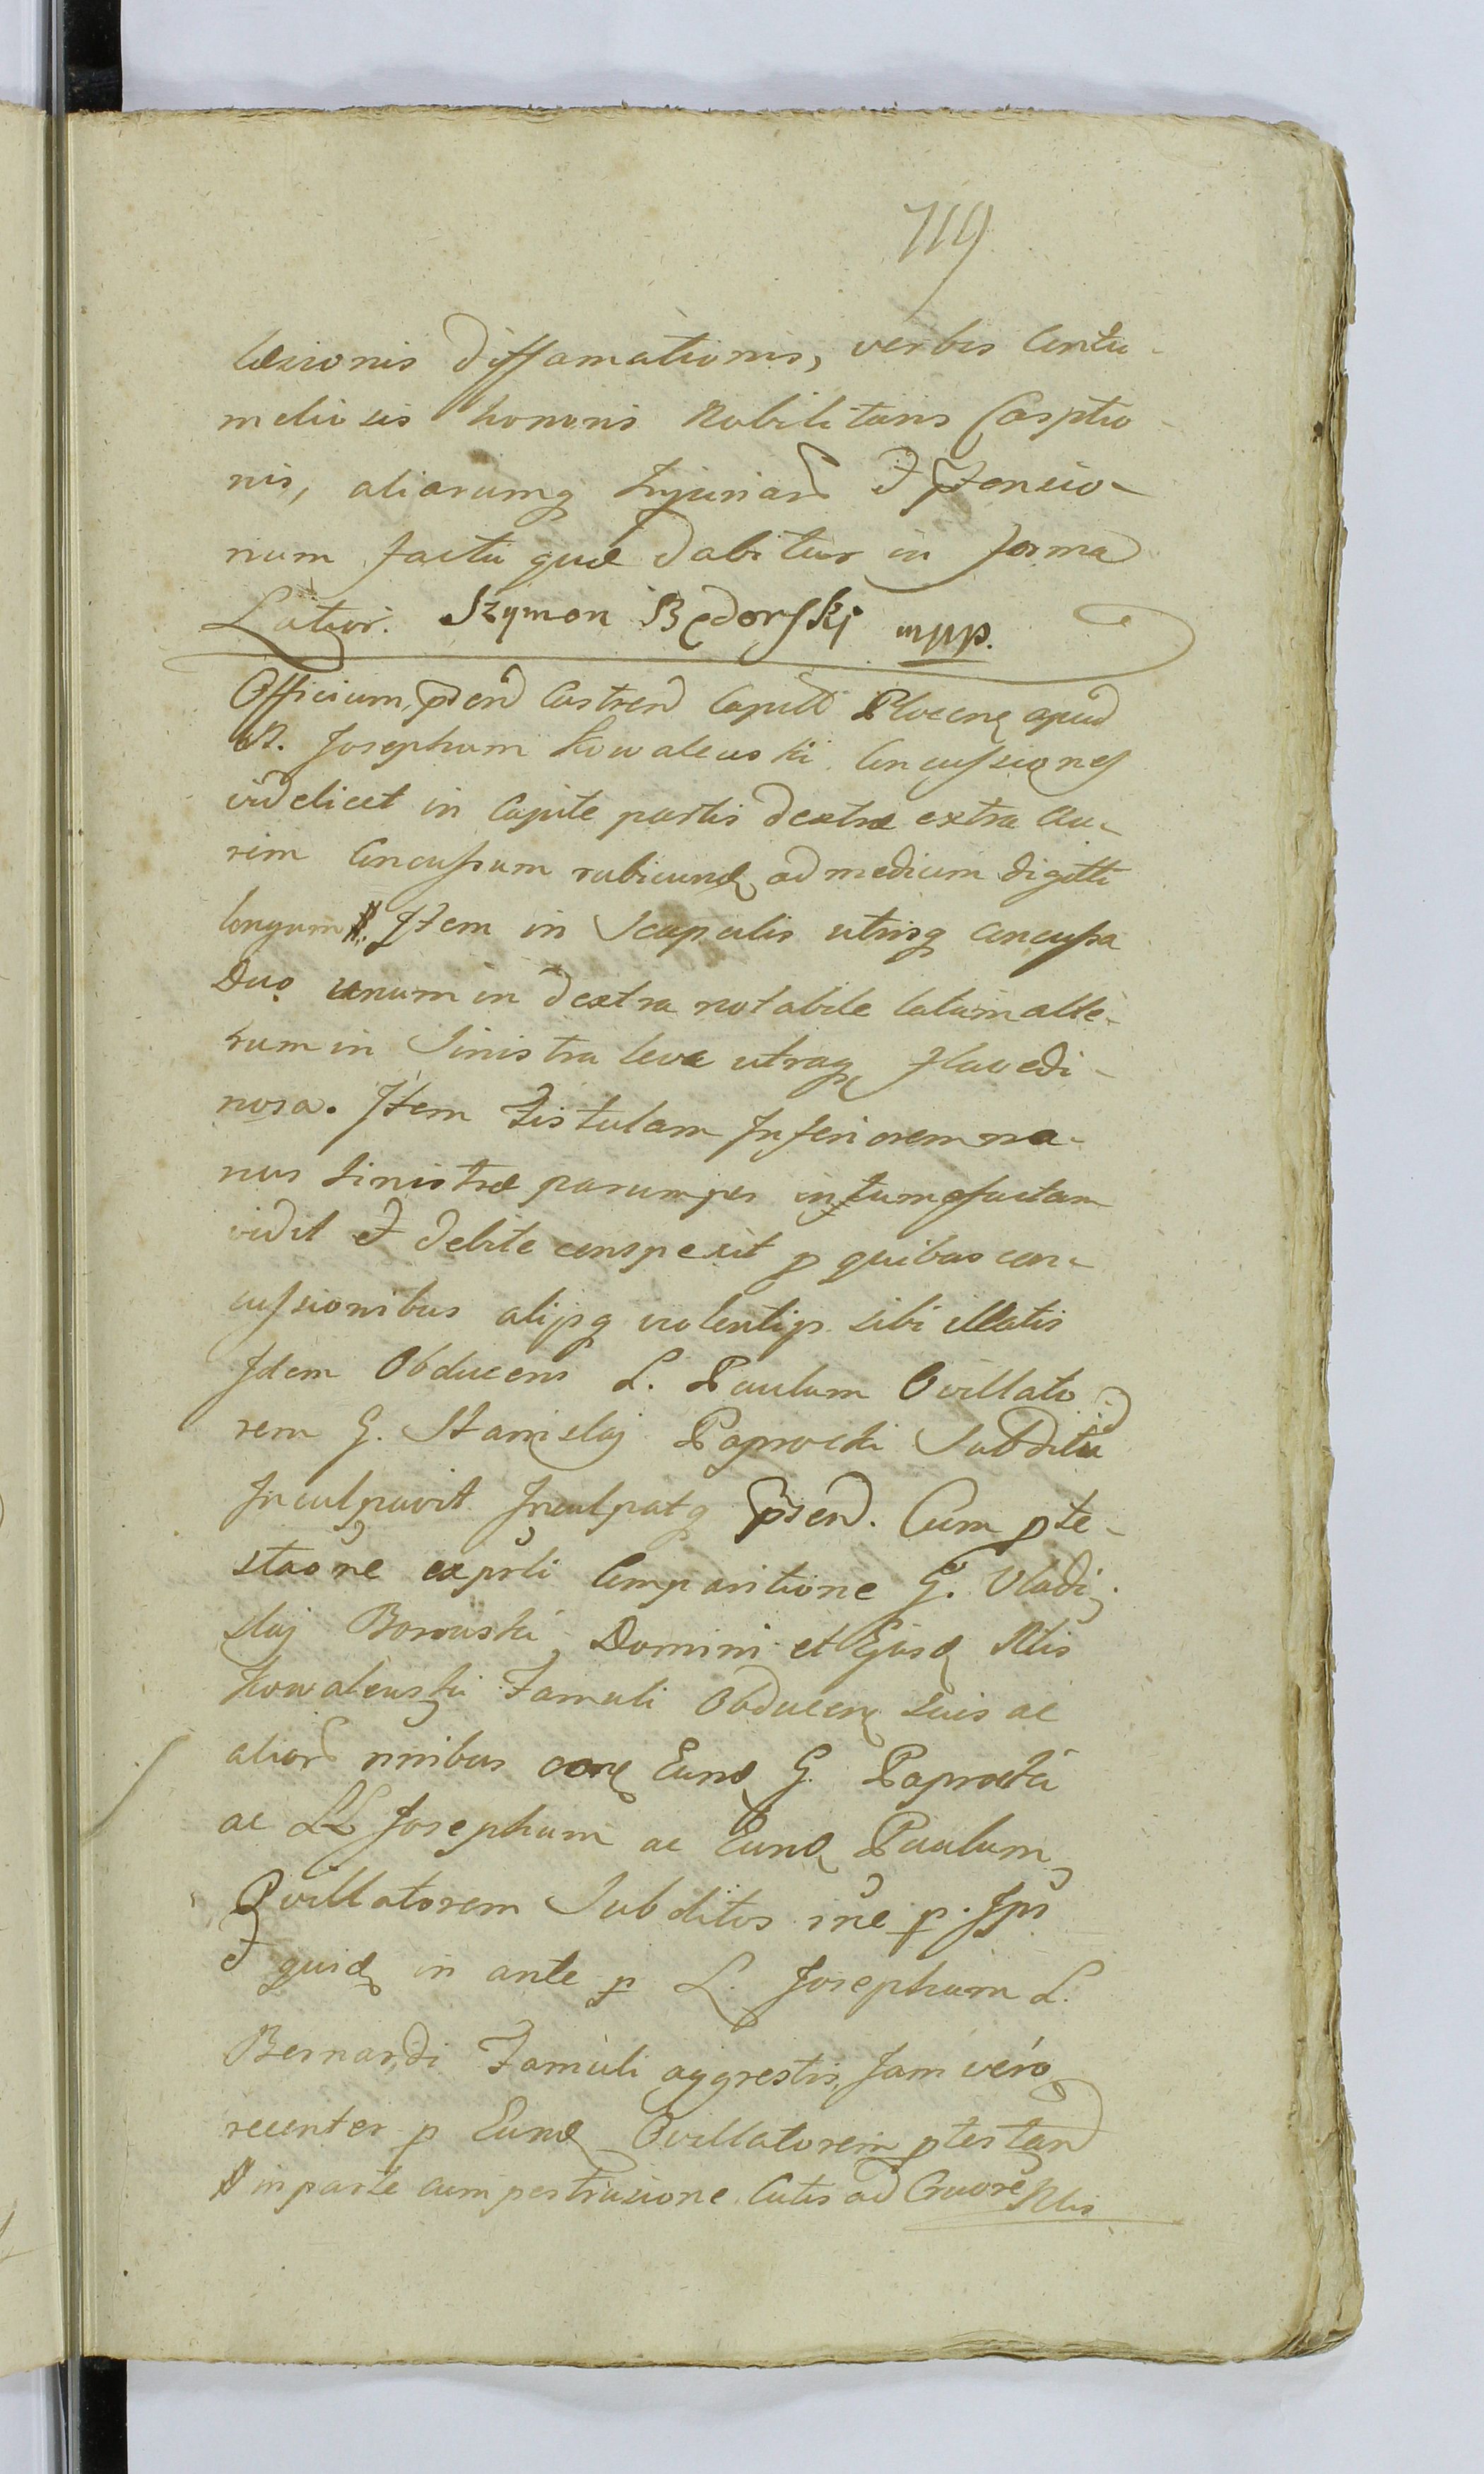 719
læsionis diffamationis, verbis Contu-
meliosis honoris Nobilitaris Casptio-
nis, aliarumq Injuriar et ptensio-
num factu quæ dabitur in forma
Latior. Szymon Będorski mpp.
Officium psend Castrend Capitl Plocene apud
N. Josephum Kowalewski Concussiones
videlicet in Capite partis dextræ extra Au-
rim Concussum rubicund ad medium digitti
longum # Item in Scapulis utrisq concussa
Duo unum in dextra notabile latum alte-
rum in Sinistra leva utraq flavedi-
nosa. Item Fistulam Inferiorem ma-
nus Sinistræ parumper intumefactam
vidit et debite conspexit p quibus con-
cussionibus alijsq violentijs sibi illatis
Idem Obducens L. Paulum Ovillato-
rem G. Stanislaj Paprocki Subditu
Inculpavit Inculpatq psend. Cum pte-
staone exprli Comparitione G. Vladi-
slaj Borowski Domini et Ejusd Nlis
Kowalewski Famuli Obducen suis ac
alior nnibus cone Eund G. Paprocki
ac LL Josephum ac Eund Paulum
Ovillatorem Subditos sne p. Ips
et quid in ante p L. Josephum L.
Bernardi Famuli aggrestis, Jam vero
recenter p Eund Ovillatorem ptestand
# in parte cum perstrizione Cutis ad Cruore Nlis